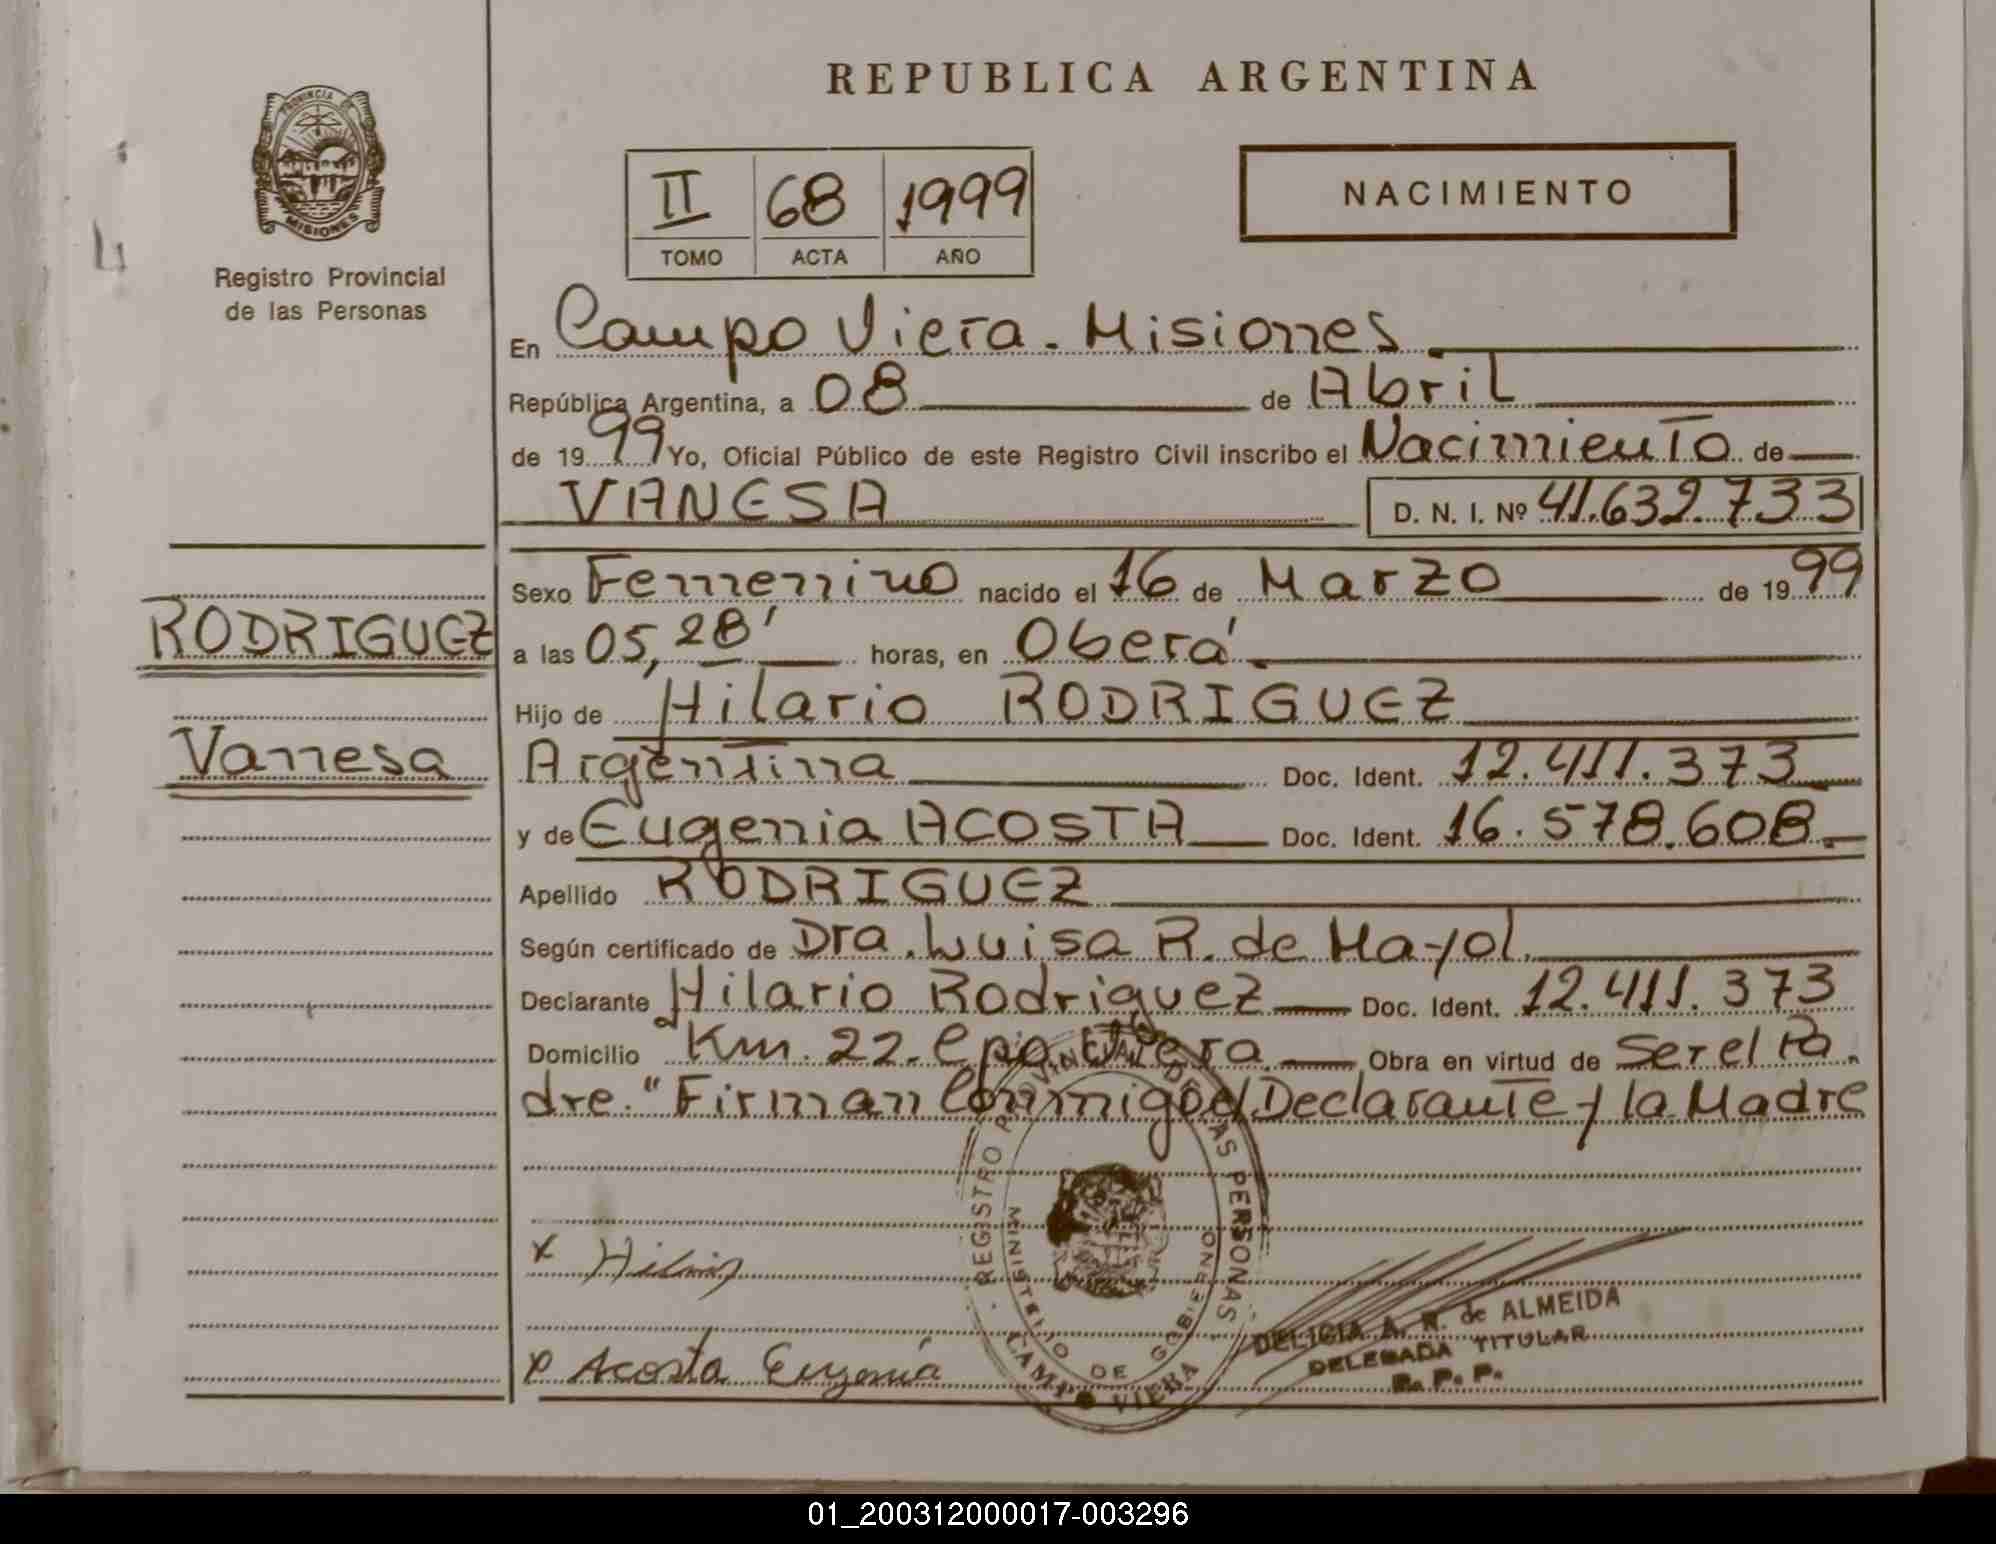 REPUBLICA ARGENTINA
PROVINCIA DE
MISIONES
Registro Provincial
de las Personas
II 68 1999
TOMO ACTA AÑO
NACIMIENTO
En Campo Viera - Misiones
República Argentina, a 08 de Abril
de 1999 Yo, Oficial Público de este Registro Civil inscribo el Nacimiento de
VANESA D. N. I. Nº 41.632.733
RODRIGUEZ
Vanesa
Sexo Femenino nacido el 16 de Marzo de 1999
a las 05,28' horas, en Oberá
Hijo de Hilario RODRIGUEZ
Argentina Doc. Ident. 12.411.373
y de Eugenia ACOSTA Doc. Ident. 16.578.608.-
Apellido RODRIGUEZ
Según certificado de Dra. Luisa R. de Mayol
Declarante Hilario Rodriguez Doc. Ident. 12.411.373
Domicilio Km. 22. Cpo Viera. Obra en virtud de Ser el Pa
dre." Firman Conmigo el Declarante y la Madre
x Hilario
x Acosta Eugenia
REGISTRO PROVINCIAL DE LAS PERSONAS
MINISTERIO DE GOBIERNO
CAMPO VIERA
DELICIA A. R. de ALMEIDA
DELEGADA TITULAR
R. P. P.
01_200312000017-003296